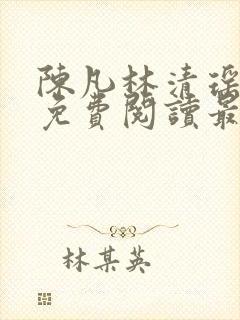 陳凡林清瑶
免費閱讀最
林某英